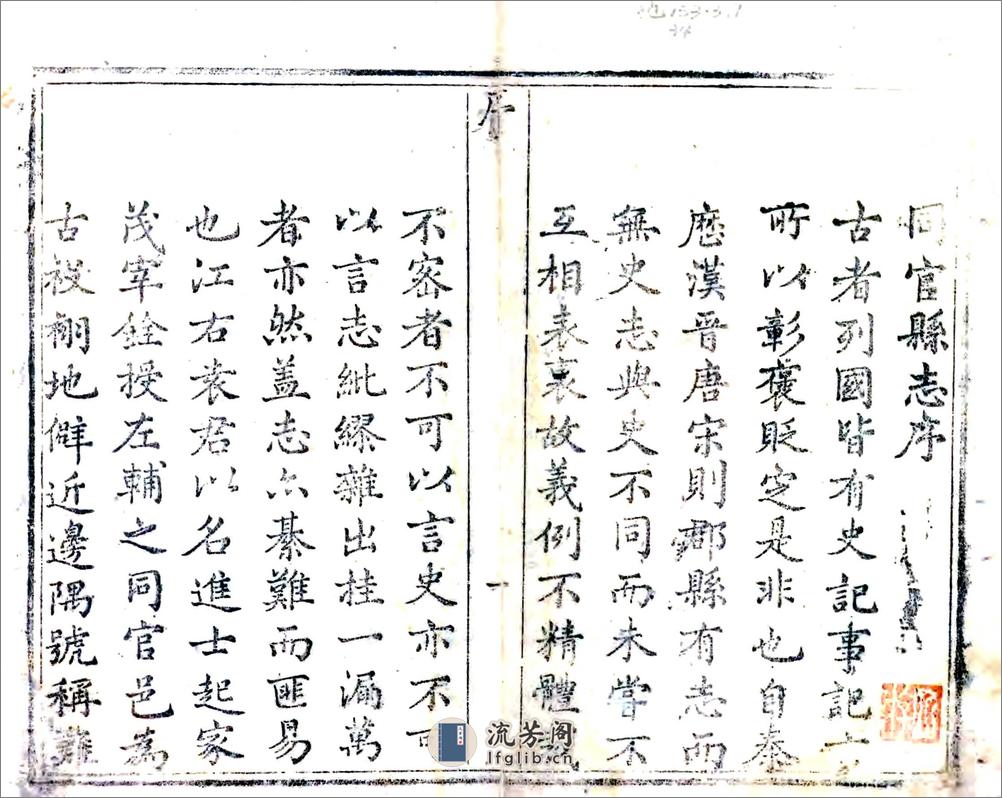 同官縣志序
古者列國皆有史記事記言
所以彰褒貶定是非也自秦
歷漢晉唐宋則郡縣有志而
無史志與史不同而未嘗不
互相表裏故義例不精體
序
一
不密者不可以言史亦不可
以言志紕繆雜出挂一漏萬
者亦然蓋志亦綦難而匪易
也江右袁君以名進士起家
茂宰銓授左輔之同官邑爲
古祋祤地僻近邊隅號稱難
流芳阁
lfglib.cn